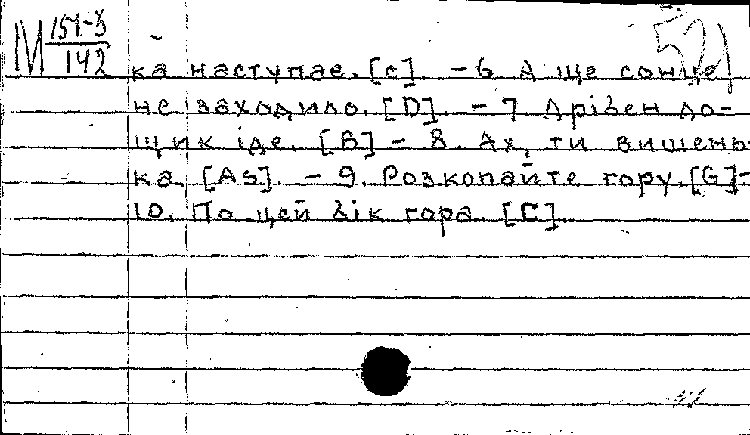 М 157-3/142
521
ка наступае. [c]. - 6 А ще сонце
не заходило. [D]. - 7 Дрібен до-
щик іде. [B] - 8. Ах, ти вишень
ка. [As]. - 9. Розкопайте гору. [G]-
10. По цей бік гора [C]